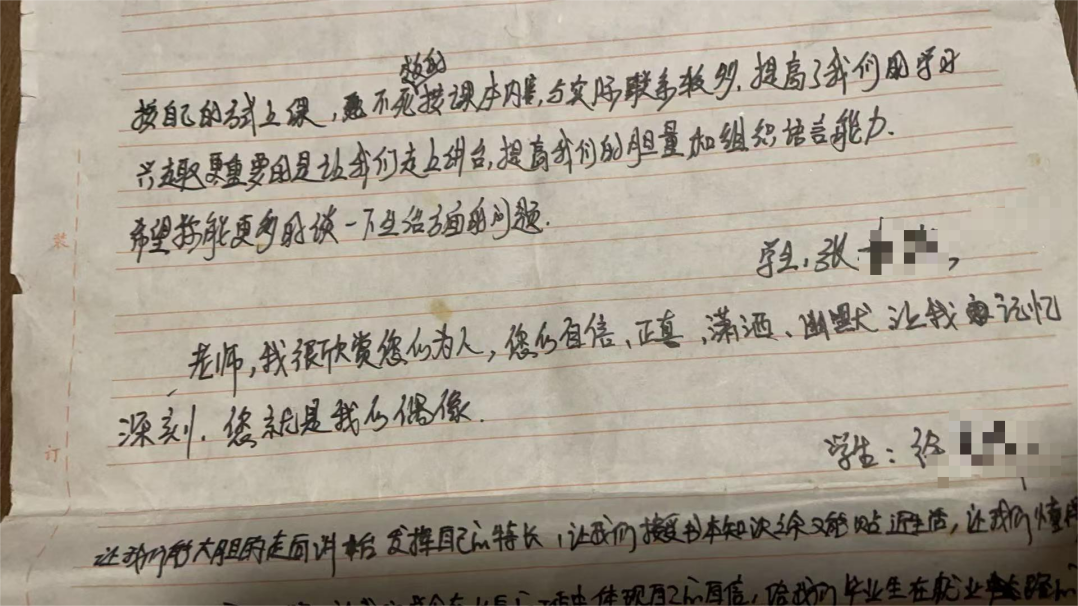 教的
按自己的方式上课，不死按课本内容，与实际联系较多，提高了我们的学习
兴趣更重要的是让我们走上讲台，提高我们的胆量和组织语言能力.
希望您能更多的谈一下生活方面的问题.
学生：张
老师，我很欣赏您的为人，您的自信、正真、潇洒、幽默让我记忆
深刻. 您就是我的偶像.
学生：
装
订
让我们能大胆的走向讲台发挥自己的特长，让我们接受书本知识之余又能贴近生活，还我们懂得
体现自己的自信，给我们毕业生在就业